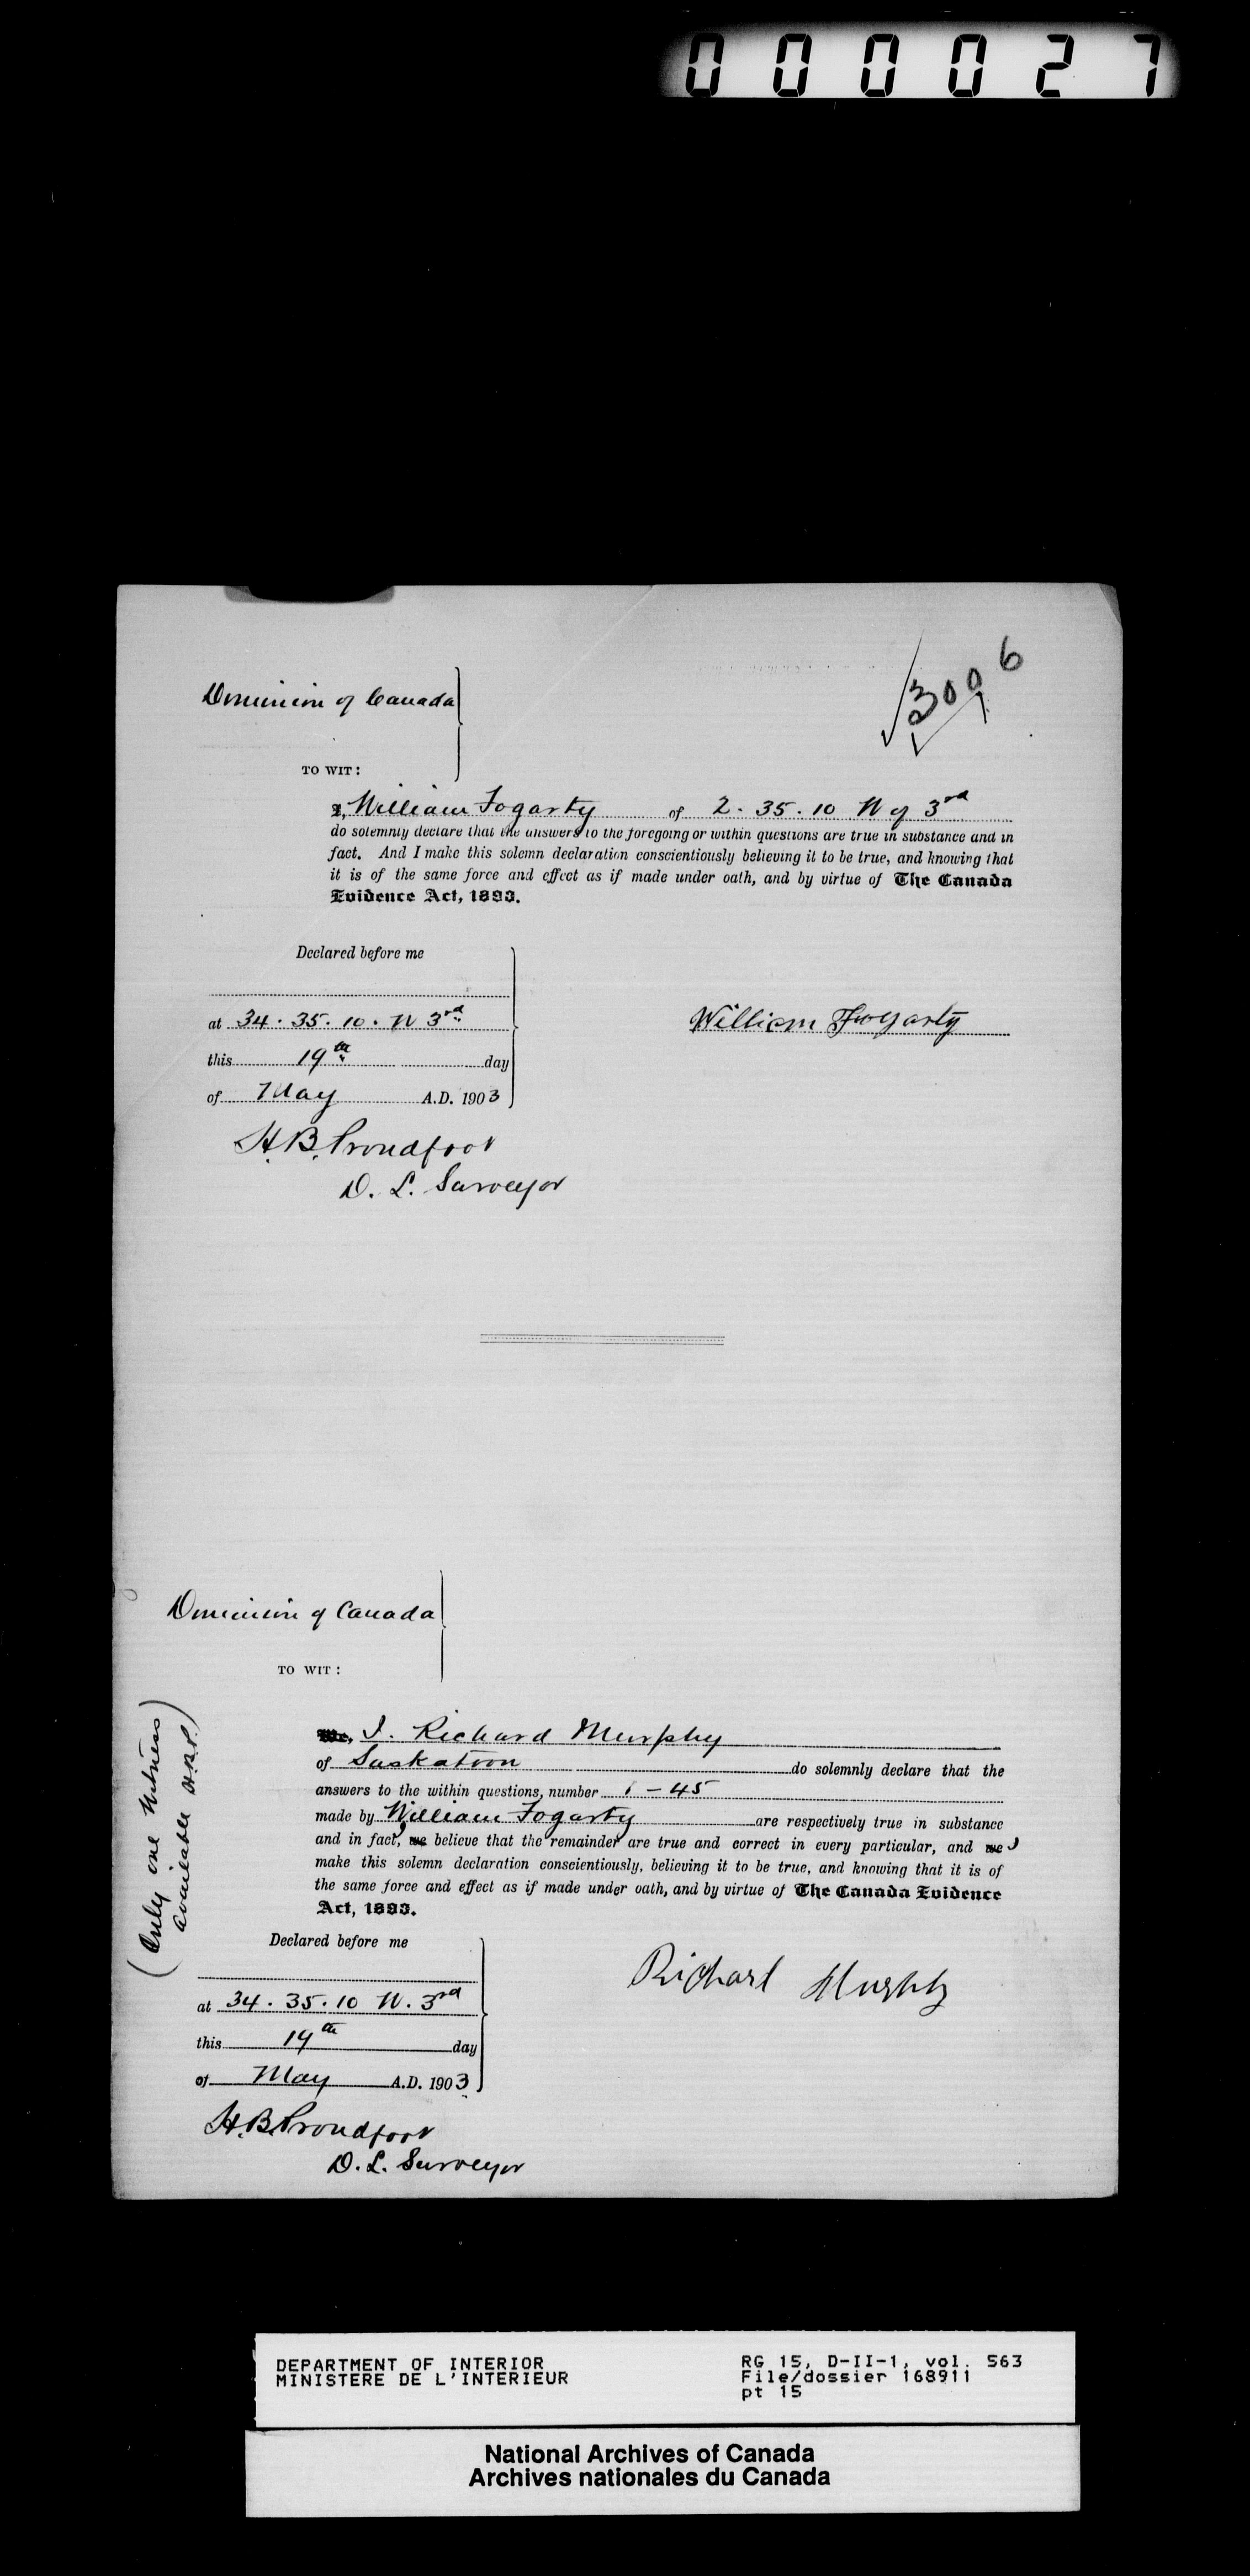 000027
3006
Dominion of Canada
TO WIT:
I, William Fogarty of 2. 35. 10 W of 3rd
do solemnly declare that the answers to the foregoing or within questions are true in substance and in
fact. And I make this solemn declaration conscientiously believing it to be true, and knowing that
it is of the same force and effect as if made under oath, and by virtue of The Canada
Evidence Act, 1893.
Declared before me
at 34. 35. 10. W 3rd
this 19th day
of May A.D. 1903
William Fogarty
H.B. Proudfoot
D. L. Surveyor
Dominion of Canada
TO WIT:
We, I. Richard Murphy
of Saskatoon do solemnly declare that the
answers to the within questions, number 1 - 45
made by William Fogarty are respectively true in substance
and in fact, we believe that the remainder are true and correct in every particular, and we
make this solemn declaration conscientiously, believing it to be true, and knowing that it is of
the same force and effect as if made under oath, and by virtue of The Canada Evidence
Act, 1893.
(Only one Witness
available H.B.P.)
Declared before me
at 34. 35. 10 W. 3rd
this 19th day
of May A.D. 1903
Richard Murphy
H.B. Proudfoot
D. L. Surveyor
DEPARTMENT OF INTERIOR
MINISTERE DE L'INTERIEUR
RG 15, D-II-1, vol. 563
File/dossier 168911
pt 15
National Archives of Canada
Archives nationales du Canada